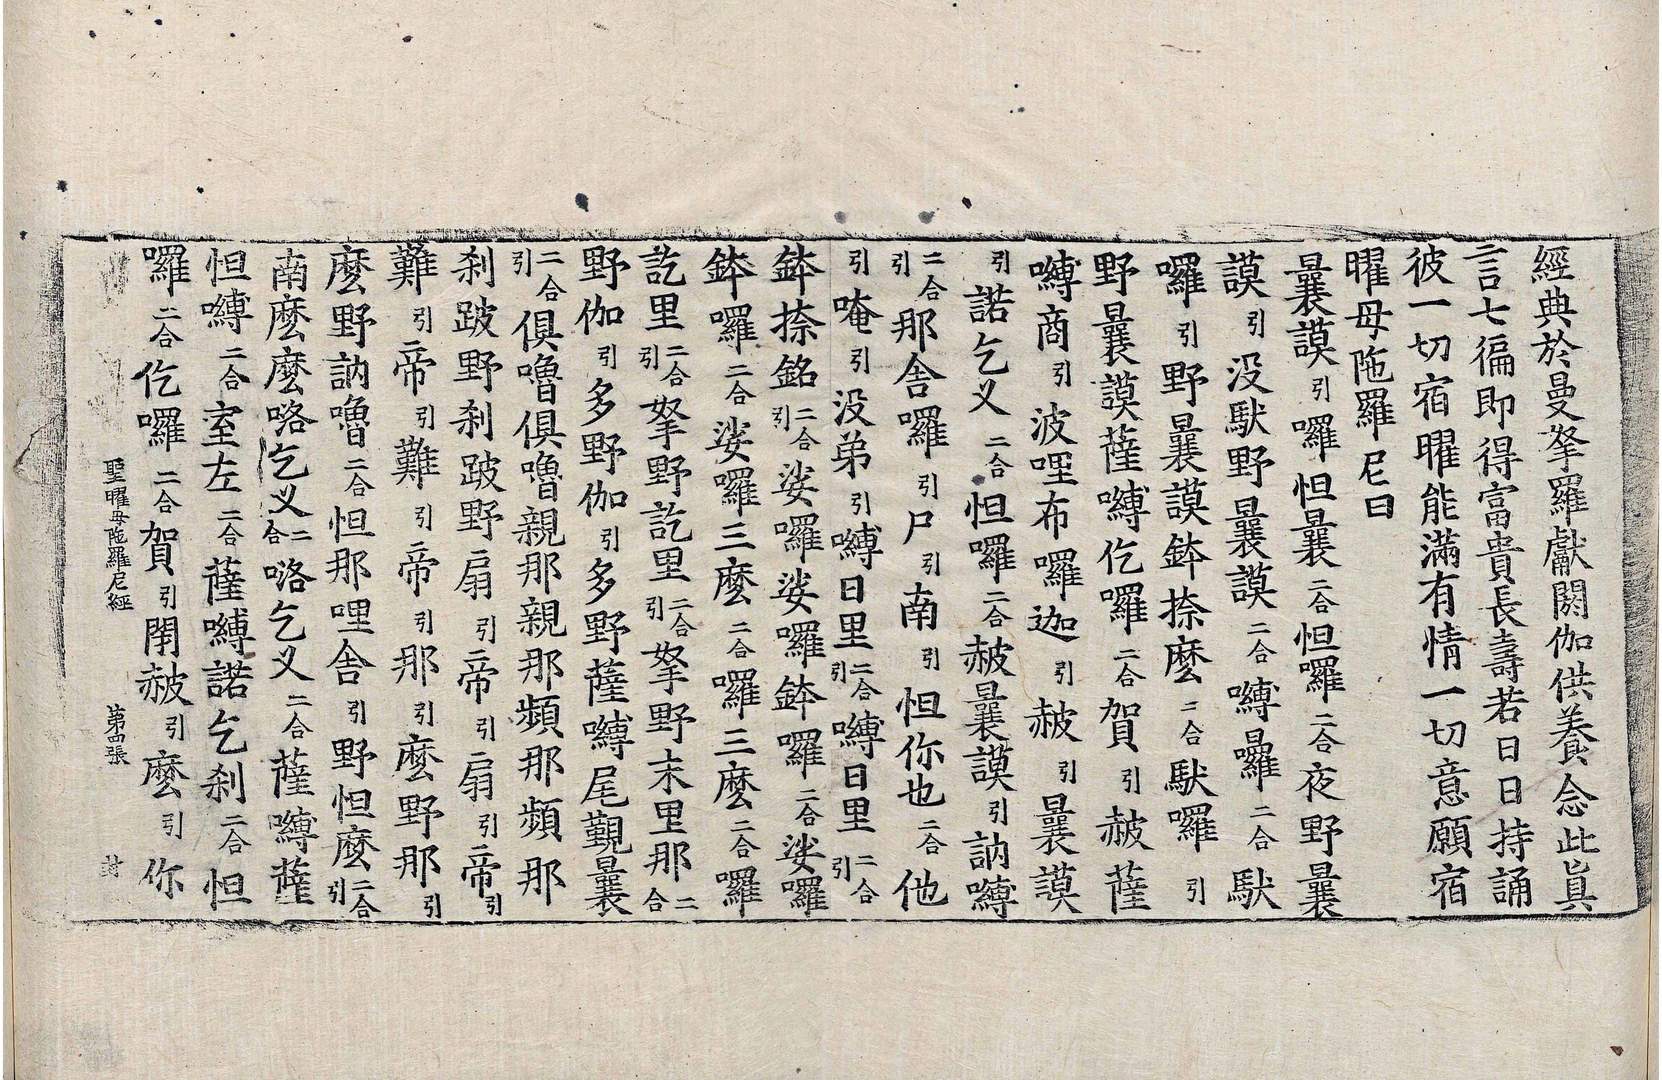 經典於曼拏羅獻閼伽供養念此真
言七徧即得富貴長壽若日日持誦
彼一切宿曜能滿有情一切意願宿
曜母陁羅尼曰
曩謨引囉怛曩二合怛囉二合夜野曩
謨引没馱野曩謨二合嚩曰囉二合馱
囉引野曩謨鉢捺麽二合馱囉引
野曩謨薩嚩仡囉二合賀引赦薩
嚩商引波哩布囉迦引赦引曩謨
引諾乞义二合怛囉二合赦曩謨引訥嚩
引二合那舍囉引尸引南引怛你也二合他
引唵引没弟引嚩日里二合引嚩日里二合引
鉢捺銘二合引娑囉娑囉鉢囉二合娑囉
鉢囉二合娑囉三麽二合囉三麽二合囉
訖里二合引拏野訖里二合引拏野末里那二合
野伽引多野伽引多野薩嚩尾覲曩
二合引俱嚕俱嚕親那親那頻那頻那
刹跛野刹跛野扇引帝引扇引帝引
難引帝引難引帝引那引麽野那引
麽野訥嚕二合怛那哩舍引野怛麽二合引
南麽麽咯乞义二合咯乞义二合薩嚩薩
怛嚩二合室左二合薩嚩諾乞刹二合怛
囉二合仡囉二合賀引閉赦引麽引你
聖曜母陁羅尼經 第四張 封